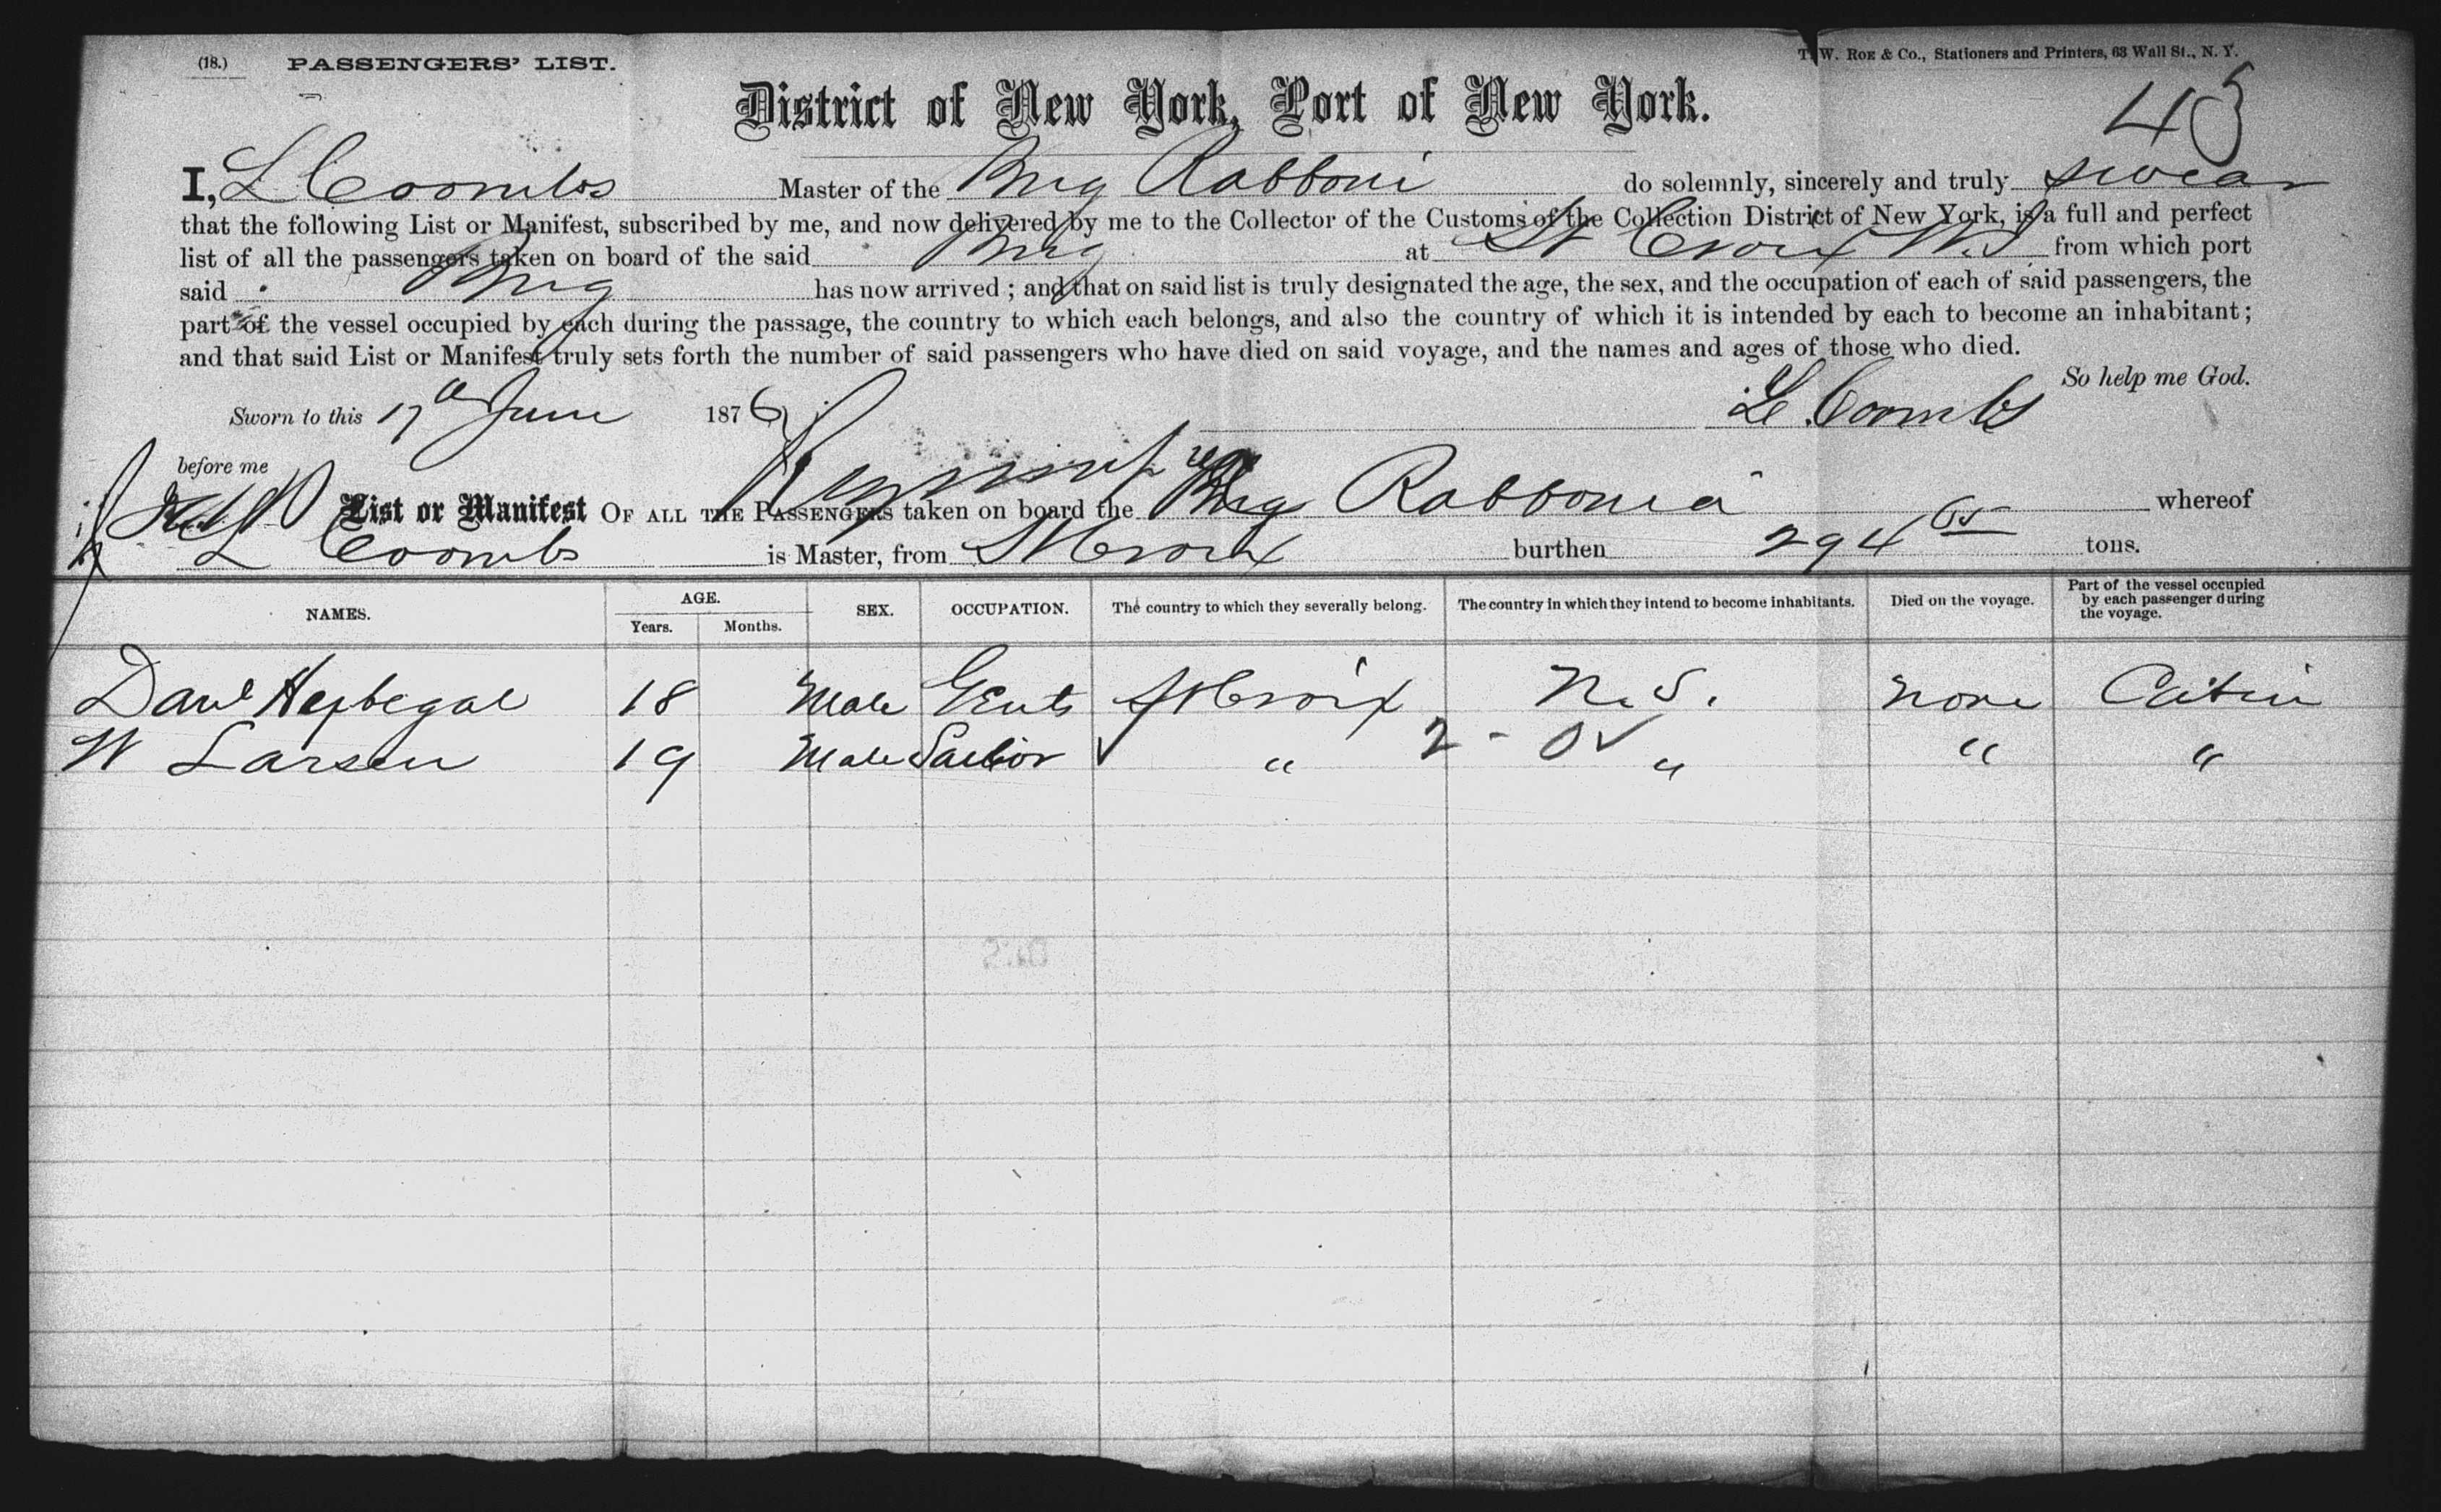 (18.) PASSENGERS' LIST.
T. W. ROE & Co., Stationers and Printers, 63 Wall St., N. Y.
45
District of New York, Port of New York.
I, L Coombs Master of the Brig Rabboni do solemnly, sincerely and truly swear
that the following List or Manifest, subscribed by me, and now delivered by me to the Collector of the Customs of the Collection District of New York, is a full and perfect
list of all the passengers taken on board of the said Brig at St Croix W.I from which port
said Brig has now arrived ; and that on said list is truly designated the age, the sex, and the occupation of each of said passengers, the
part of the vessel occupied by each during the passage, the country to which each belongs, and also the country of which it is intended by each to become an inhabitant;
and that said List or Manifest truly sets forth the number of said passengers who have died on said voyage, and the names and ages of those who died.
So help me God.
Sworn to this 17th June 1876 L Coombs
before me
List or Manifest OF ALL THE PASSENGERS taken on board the Brig Rabbonia whereof
L Coombs is Master, from St Croix burthen 294 tons.
NAMES. AGE. SEX. OCCUPATION. The country to which they severally belong. The country in which they intend to become inhabitants. Died on the voyage. Part of the vessel occupied by each passenger during the voyage.
Years. Months.
Danl 18 Male Gents St Croix N.S. None Cabin
W Larsen 19 Male Sailor " 2 - 0 " " "